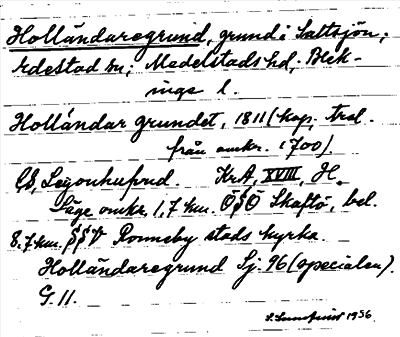 Holländaregrund, grund i Saltsjön;
Edestad sn; Medelstads hd; Blek-
inge l.
Holländar grundet, 1811 (kop. trol.
från omkr. 1700).
CG, Lejonhufvud. KrA, XVIII, H.
Läge omkr. 1,7 km. ÖSÖ Skaftö, bel.
8.7 km. SSV Ronneby stads kyrka.
Holländaregrund Sj. 96 (specialen).
G. 11.
1956.